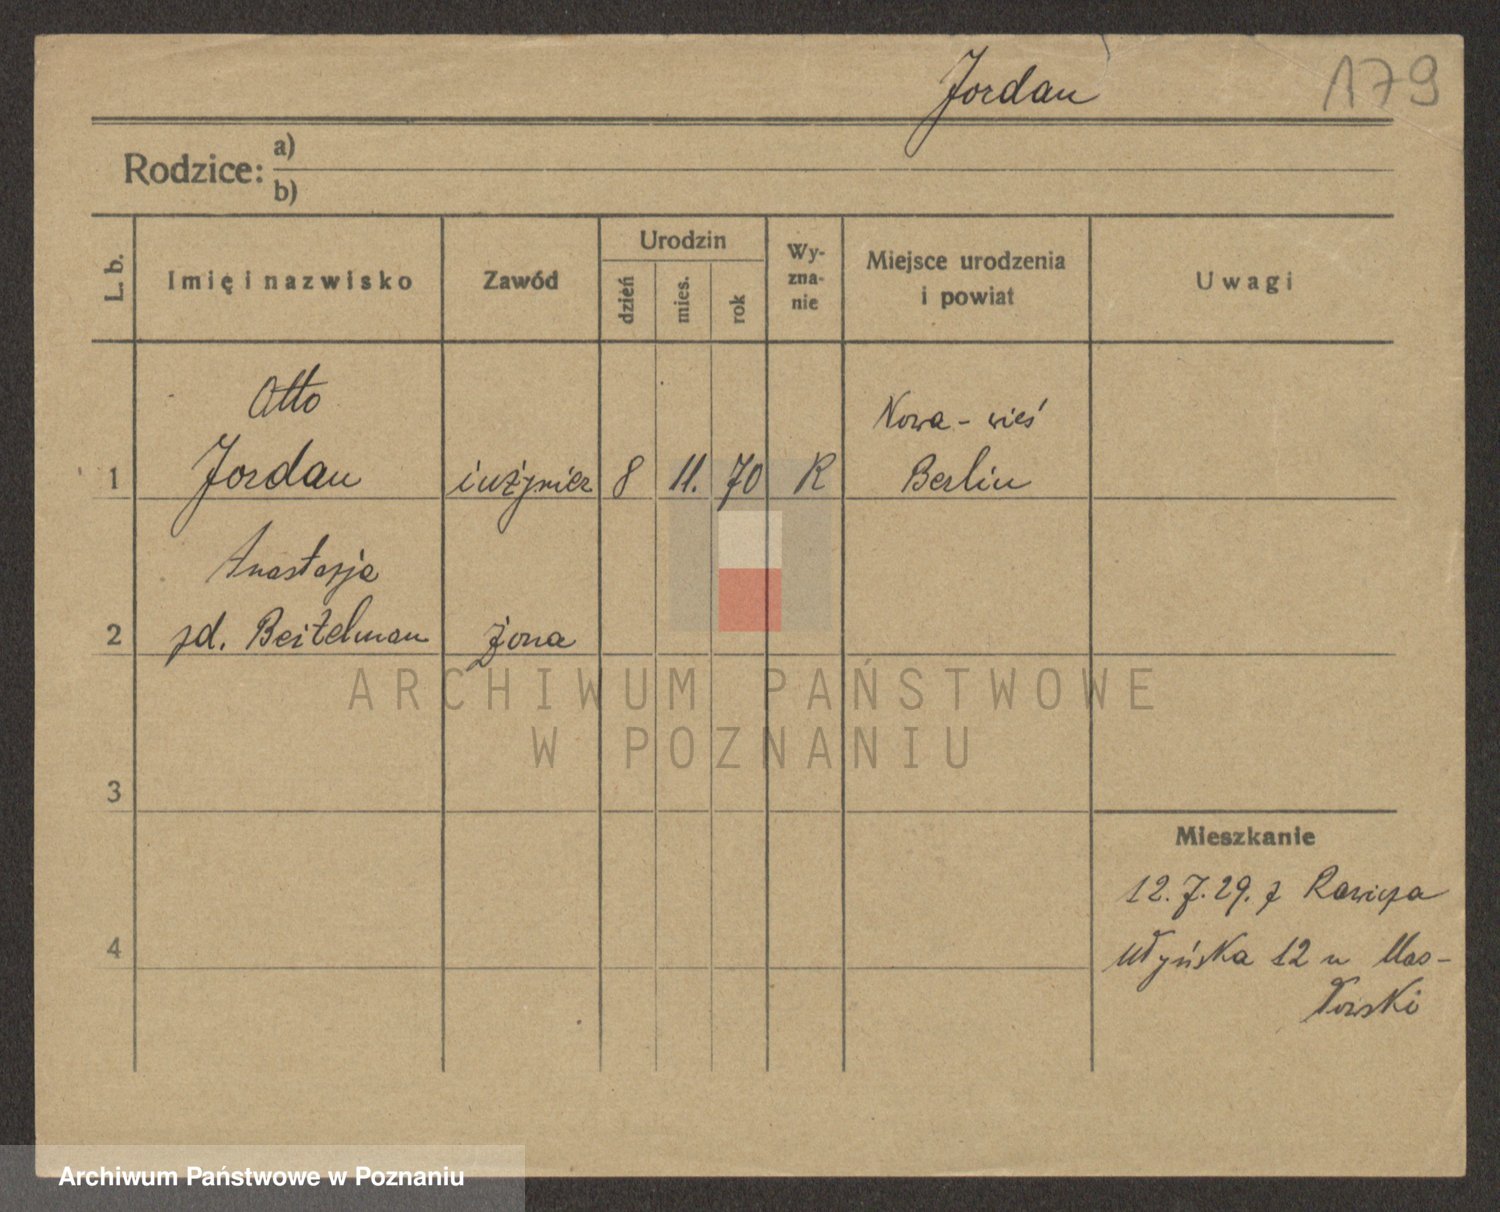 Jordan
179
Rodzice: a)
b)
L. b.
Imię i nazwisko
Zawód
Urodzin
dzień
mies.
rok
Wy-
zna-
nie
Miejsce urodzenia
i powiat
Uwagi
Otto
Nowa - wieś
1 Jordan inżynier 8 11. 70 R Berlin
Anastazja
2 zd. Beitelman żona
3
4
Mieszkanie
12.7.29. z Rawicza
Młyńska 12 u Mas-
łowski
ARCHIWUM PAŃSTWOWE
W POZNANIU
Archiwum Państwowe w Poznaniu